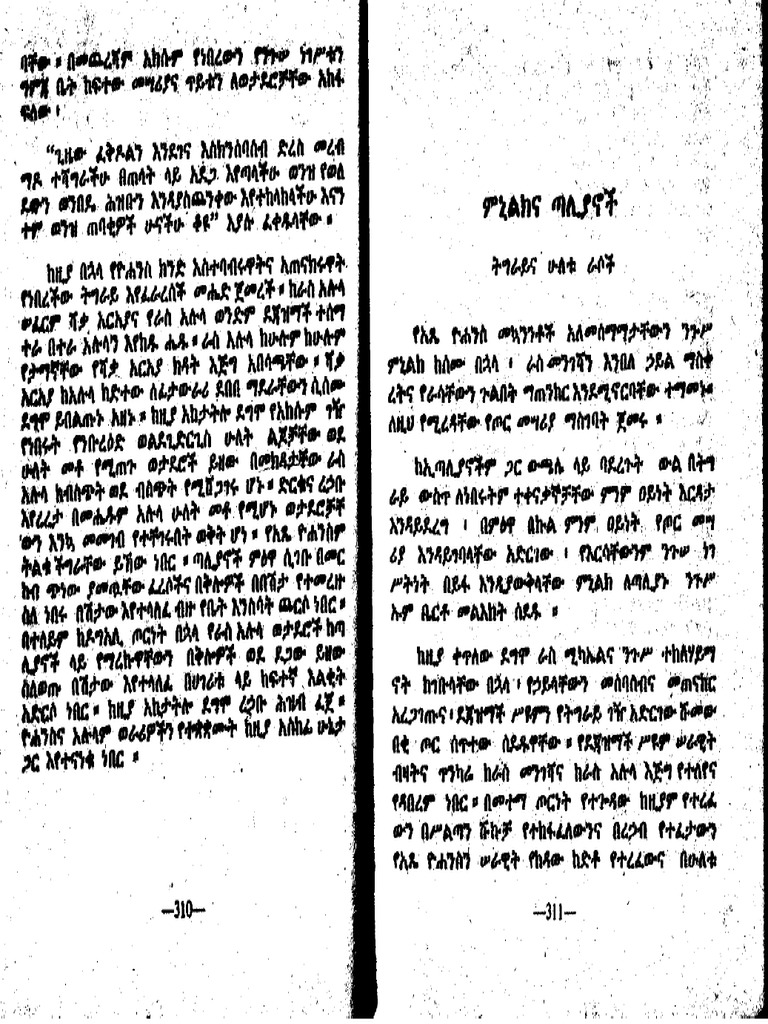 ባቸው ። በመጨረሻም አክሱም የነበረውን የንጉሠ ነገሥቱን
ግምጃ ቤት ከፍተው መሣሪያና ጥይቱን ለወታደሮቻቸው አከፋ
ፍለው ፣
“ጊዜው ፈቅዶልን እንደገና እስክንሰባሰብ ድረስ መረብ
ማዶ ተሻግራችሁ በጠላት ላይ አደጋ እየጣላችሁ ወንዝ የወለ
ደውን ወንበዴ ሕዝቡን እንዳያስጨንቀው እየተከላከላችሁ እናን
ተም ወንዝ ጠባቂዎች ሁናችሁ ቆዩ” እያሉ ፈቀዱላቸው ።
ከዚያ በኋላ የዮሐንስ ክንድ አስተባብሩዋትና አጠናክሩዋት
የነበረችው ትግራይ እየፈራረሰች መሔድ ጀመረች ። ከራስ አሉላ
ሠፈርም ሻቃ አርአያና የራስ አሉላ ወንድም ደጃዝማች ተሰማ
ተራ በተራ አሉላን እየከዱ ሔዱ ። ራስ አሉላ ከሁሉም ከሁሉም
የታማኛቸው የሻቃ አርአያ ክዳት እጅግ አበሳጫቸው ። ሻቃ
አርአያ ከአሉላ ከድተው ሰፊታውራሪ ደበበ ማደራቸውን ሲሰሙ
ደግሞ ይብልጡኑ አዘኑ ። ከዚያ አከታትሎ ደግሞ የአክሱም ገዥ
የነበሩት የንቡረዕድ ወልደጊድርጊስ ሁለት ልጆቻቸው ወደ
ሁለት መቶ የሚጠጉ ወታደሮች ይዘው በመክዳታቸው ራስ
አሉላ ከብስጭት ወደ ብስጭት የሚሸጋገሩ ሆኑ ። ድርቁና ረኃቡ
እየረረታ በመሔዱም አሉላ ሁለት መቶ የሚሆኑ ወታደሮቻቸ
ውን እንኳ መመገብ የተቸገሩበት ወቅት ሆነ ። የአጼ ዮሐንስም
ትልቁ ችግራቸው ይኸው ነበር ። ጣሊያኖች ምፅዋ ሲገቡ በመር
ከብ ጭነው ያመጧቸው ፈረሶችና በቅሎዎች በበሽታ የተመረዙ
ስለ ነበሩ በሽታው እየተላለፈ ብዙ የቤት እንስሳት ጨርሶ ነበር ።
በተለይም ከዶግአሊ ጦርነት በኋላ የራስ አሉላ ወታደሮች ከጣ
ሊያኖች ላይ የማረኩዋቸውን በቅሎዎች ወደ ደጋው ይዘው
ስለወጡ በሽታው እየተላለፈ በሀገሪቱ ላይ ከፍተኛ እልቂት
አድርሶ ነበር ። ከዚያ አከታትሎ ደግሞ ረኃቡ ሕዝብ ፈጀ ።
ዮሐንስና አሉላም ወራሪዎችን የተቋቋሙት ከዚያ አስከፊ ሁኔታ
ጋር እየተናነቁ ነበር ።
—310—
ምኒልክና ጣሊያኖች
ትግራይና ሁለቱ ራሶች
የአጼ ዮሐንስ መኳንንቶች አለመስማማታቸውን ንጉሥ
ምኒልክ ከሰሙ በኋላ ፣ ራስ መንገሻን እንበለ ኃይል ማስቀ
ረትና የራሳቸውን ጉልበት ማጠንከር እንደሚኖርባቸው ተማመኑ።
ለዚህ የሚረዳቸው የጦር መሣሪያ ማስገባት ጀመሩ ።
ከኢጣሊያኖችም ጋር ውጫሌ ላይ ባደረጉት ውል በትግ
ራይ ውስጥ ለነበሩትም ተቀናቃኞቻቸው ምንም ዐይነት እርዳታ
እንዳይደረግ ፣ በምፅዋ በኩል ምንም ዐይነት የጦር መሣ
ሪያ እንዳይገባላቸው አድርገው ፣ የእርሳቸውንም ንጉሠ ነገ
ሥትነት በይፋ እንዲያውቅላቸው ምኒልክ ለጣሊያኑ ንጉሥ
ኡም ቤርቶ መልእክት ሰደዱ ።
ከዚያ ቀጥለው ደግሞ ራስ ሚካኤልና ንጉሥ ተክለሃይማ
ኖት ከገቡላቸው በኋላ ፣ የኃይላቸውን መሰባሰብና መጠናከር
አረጋገጡና ፣ ደጃዝማች ሥዩምን የትግራይ ገዥ አድርገው ሹመው
በቂ ጦር ሰጥተው ሰደዱዋቸው ። የደጃዝማች ሥዩም ሠራዊት
ብዛትና ጥንካሬ ከራስ መንገሻና ከራስ አሉላ እጅግ የተለየና
የዳበረም ነበር ። በመተማ ጦርነት የተጐዳው ከዚያም የተረፈ
ውን በሥልጣን ሹኩቻ የተከፋፈለውንና በረኃብ የተፈታውን
የአጼ ዮሐንስን ሠራዊት የከዳው ከድቶ የተረፈውና በሁለቱ
—311—